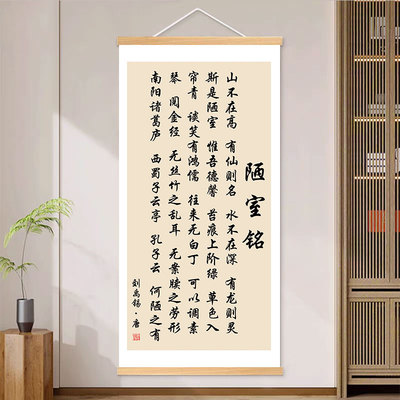 陋室铭
山不在高 有仙则名 水不在深 有龙则灵
斯是陋室 惟吾德馨 苔痕上阶绿 草色入
帘青 谈笑有鸿儒 往来无白丁 可以调素
琴 阅金经 无丝竹之乱耳 无案牍之劳形
南阳诸葛庐 西蜀子云亭 孔子云 何陋之有
刘禹锡·唐